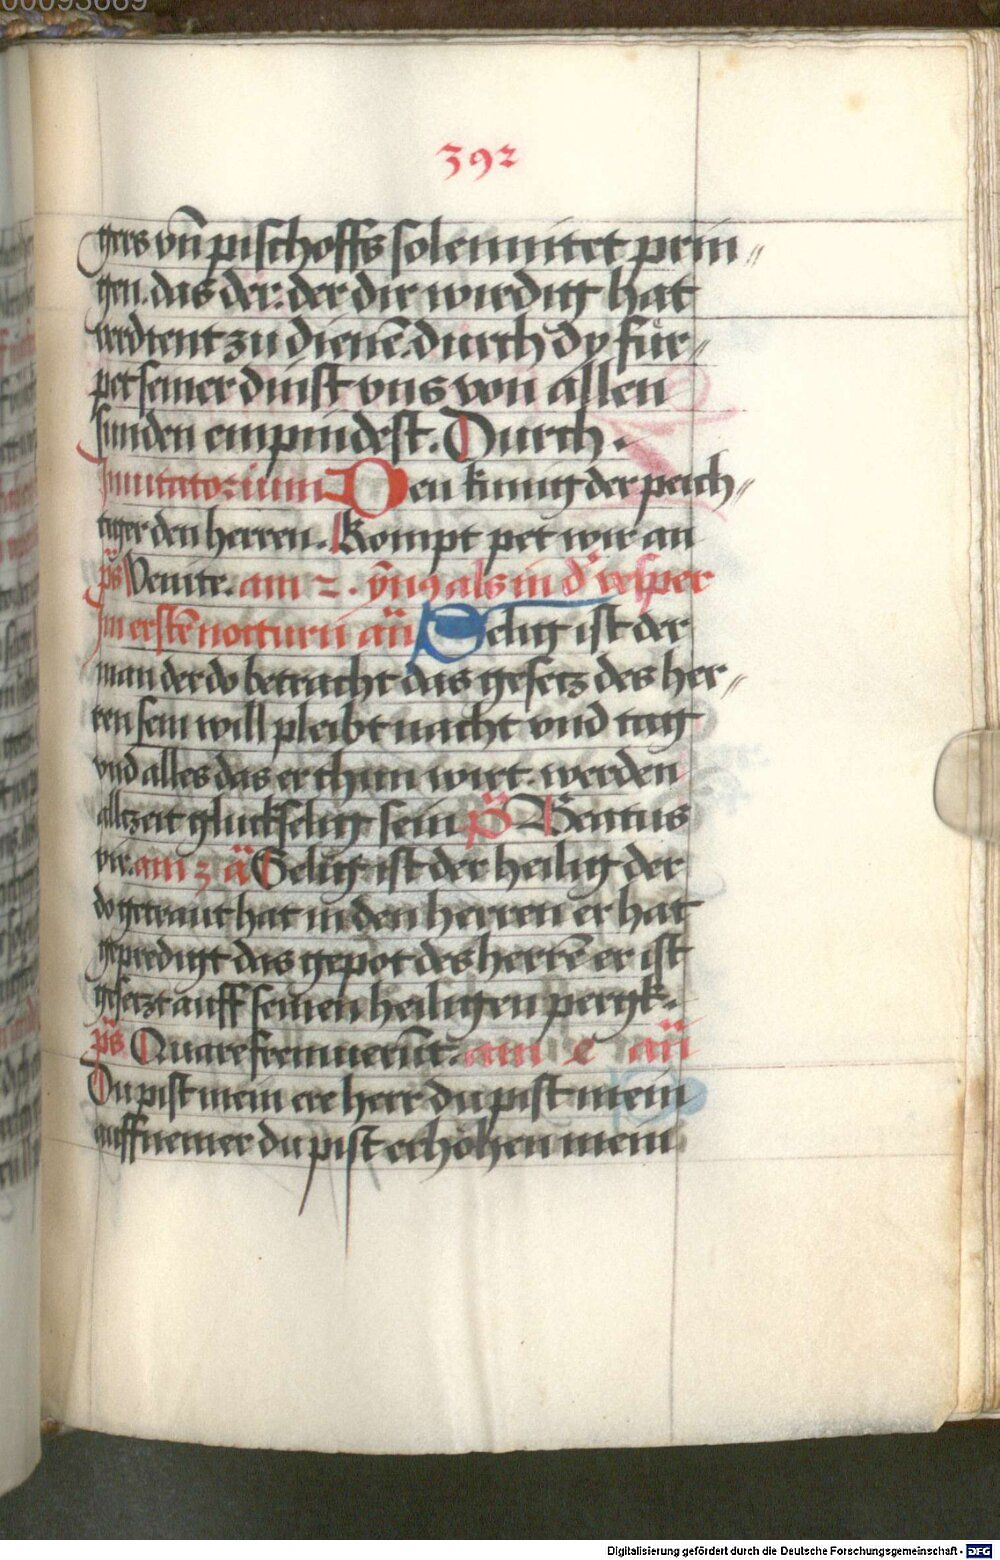 00093669
392
gers vn̄ pischoffs solennitet prin〃
gen. das der: der dir wirdig hat
verdient zu dienē. durch dy für〃
pet seiner dinst vns von allen
sunden empindest. Durch.
Inuitatorium Den kunig der peich〃
tiger den herren. Kompt pet wir an
ps̄ Venite. am 2. ÿn9 als in dʼ vesper
Im erstē nocturn an̄ Selig ist der
man der do betracht das gesetz des her〃
ren sein will pleibt nacht vnd tag
vnd alles das er thun wirt. werden
allzeit gluckselig sein ps̄ Beatus
vir. am 3 ā Selig ist der heilig der
do getraut hat in den herren er hat
gepredigt das gepot des herrē er ist
gesetzt auff seinen heiligen pergk.
ps̄ Quare fremuerūt. am e an̄
Du pist mein ere herr du pist mein
auffnemer du pist erhöhen mein
Digitalisierung gefördert durch die Deutsche Forschungsgemeinschaft - DFG